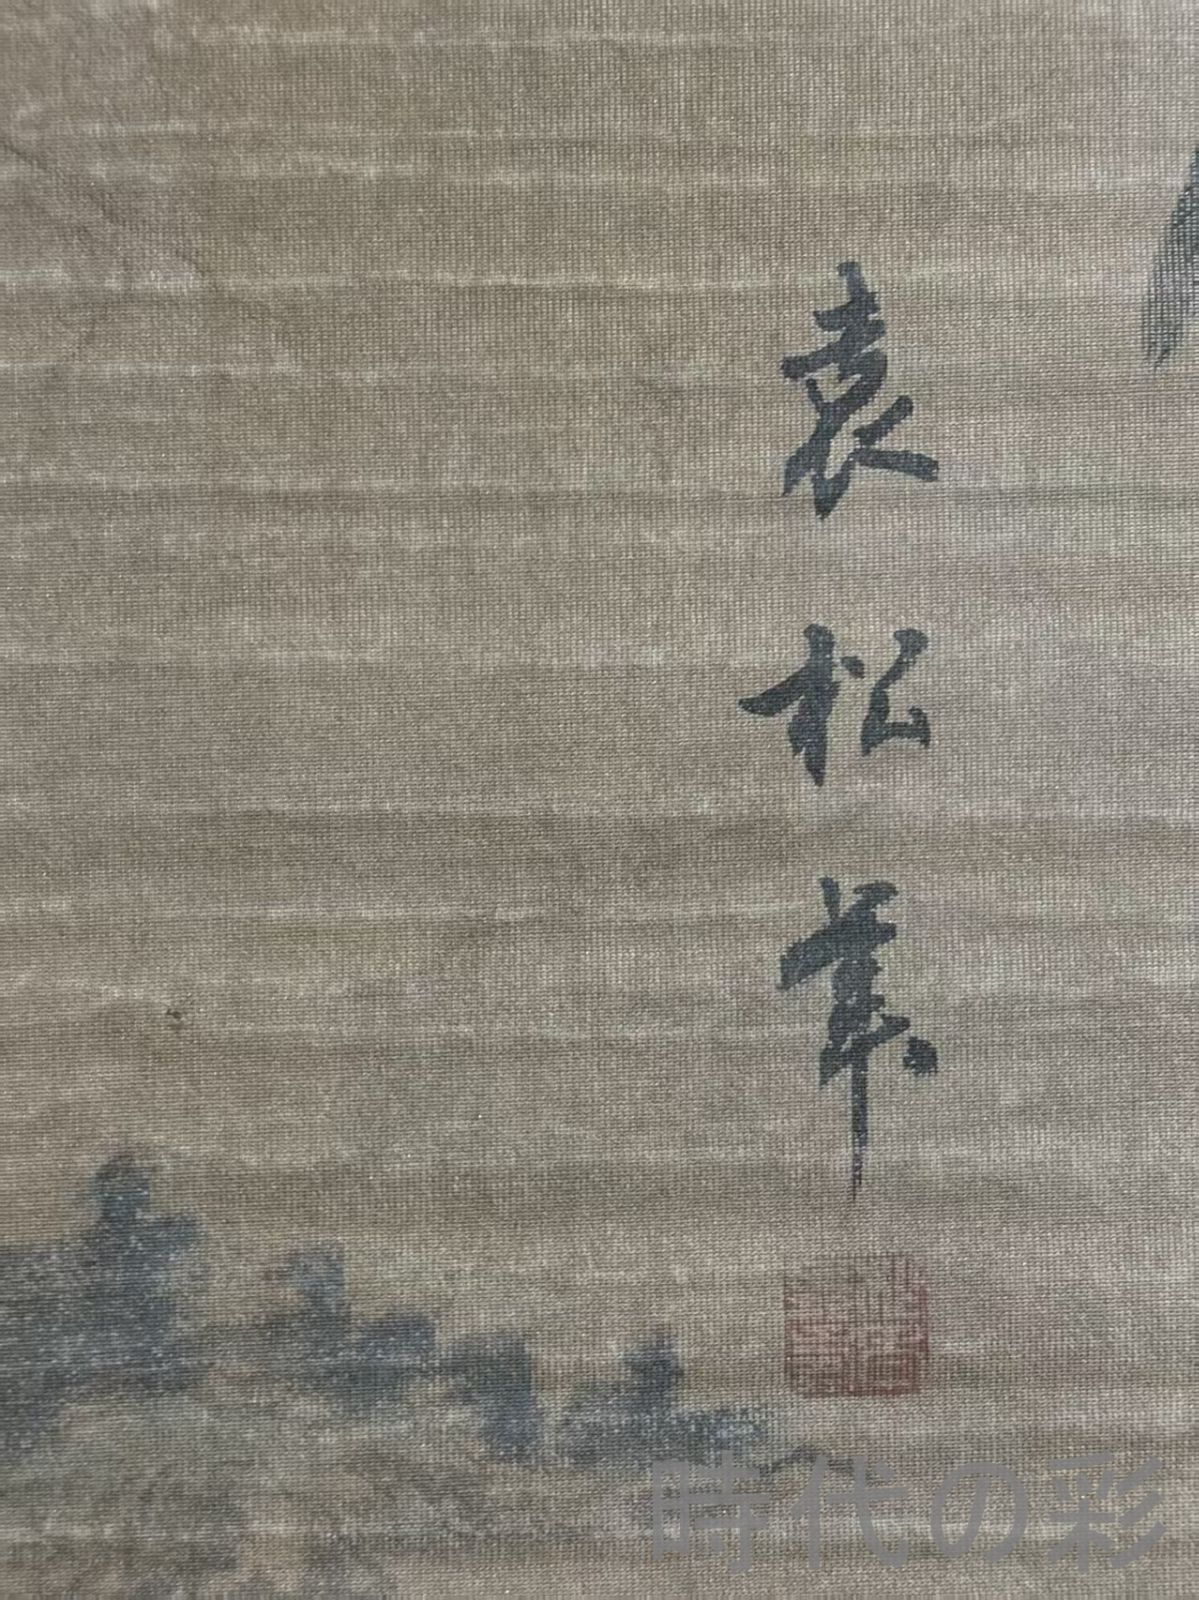 袁松筆
時代の彩